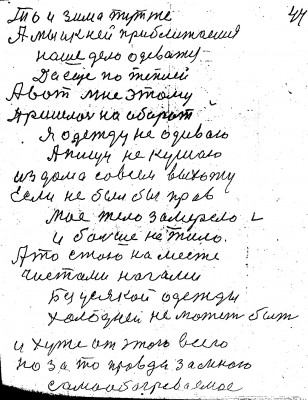 44
То и зима тут же
А мы к ней приближаемся
наше дело одежду
Да еще по теплей
А вот мне этому
Пришлось на оборот
Я одежду не одеваю
А пищу не кушаю
из дома совсем выхожу
Если не был бы прав
Мое тело замерзло
и больше не жило.
А то стою на месте
чистыми ногами
Без усякой одежды
Холодней не может быть
и хуже от этого всего
но за то правды за мною
самообогреваемое